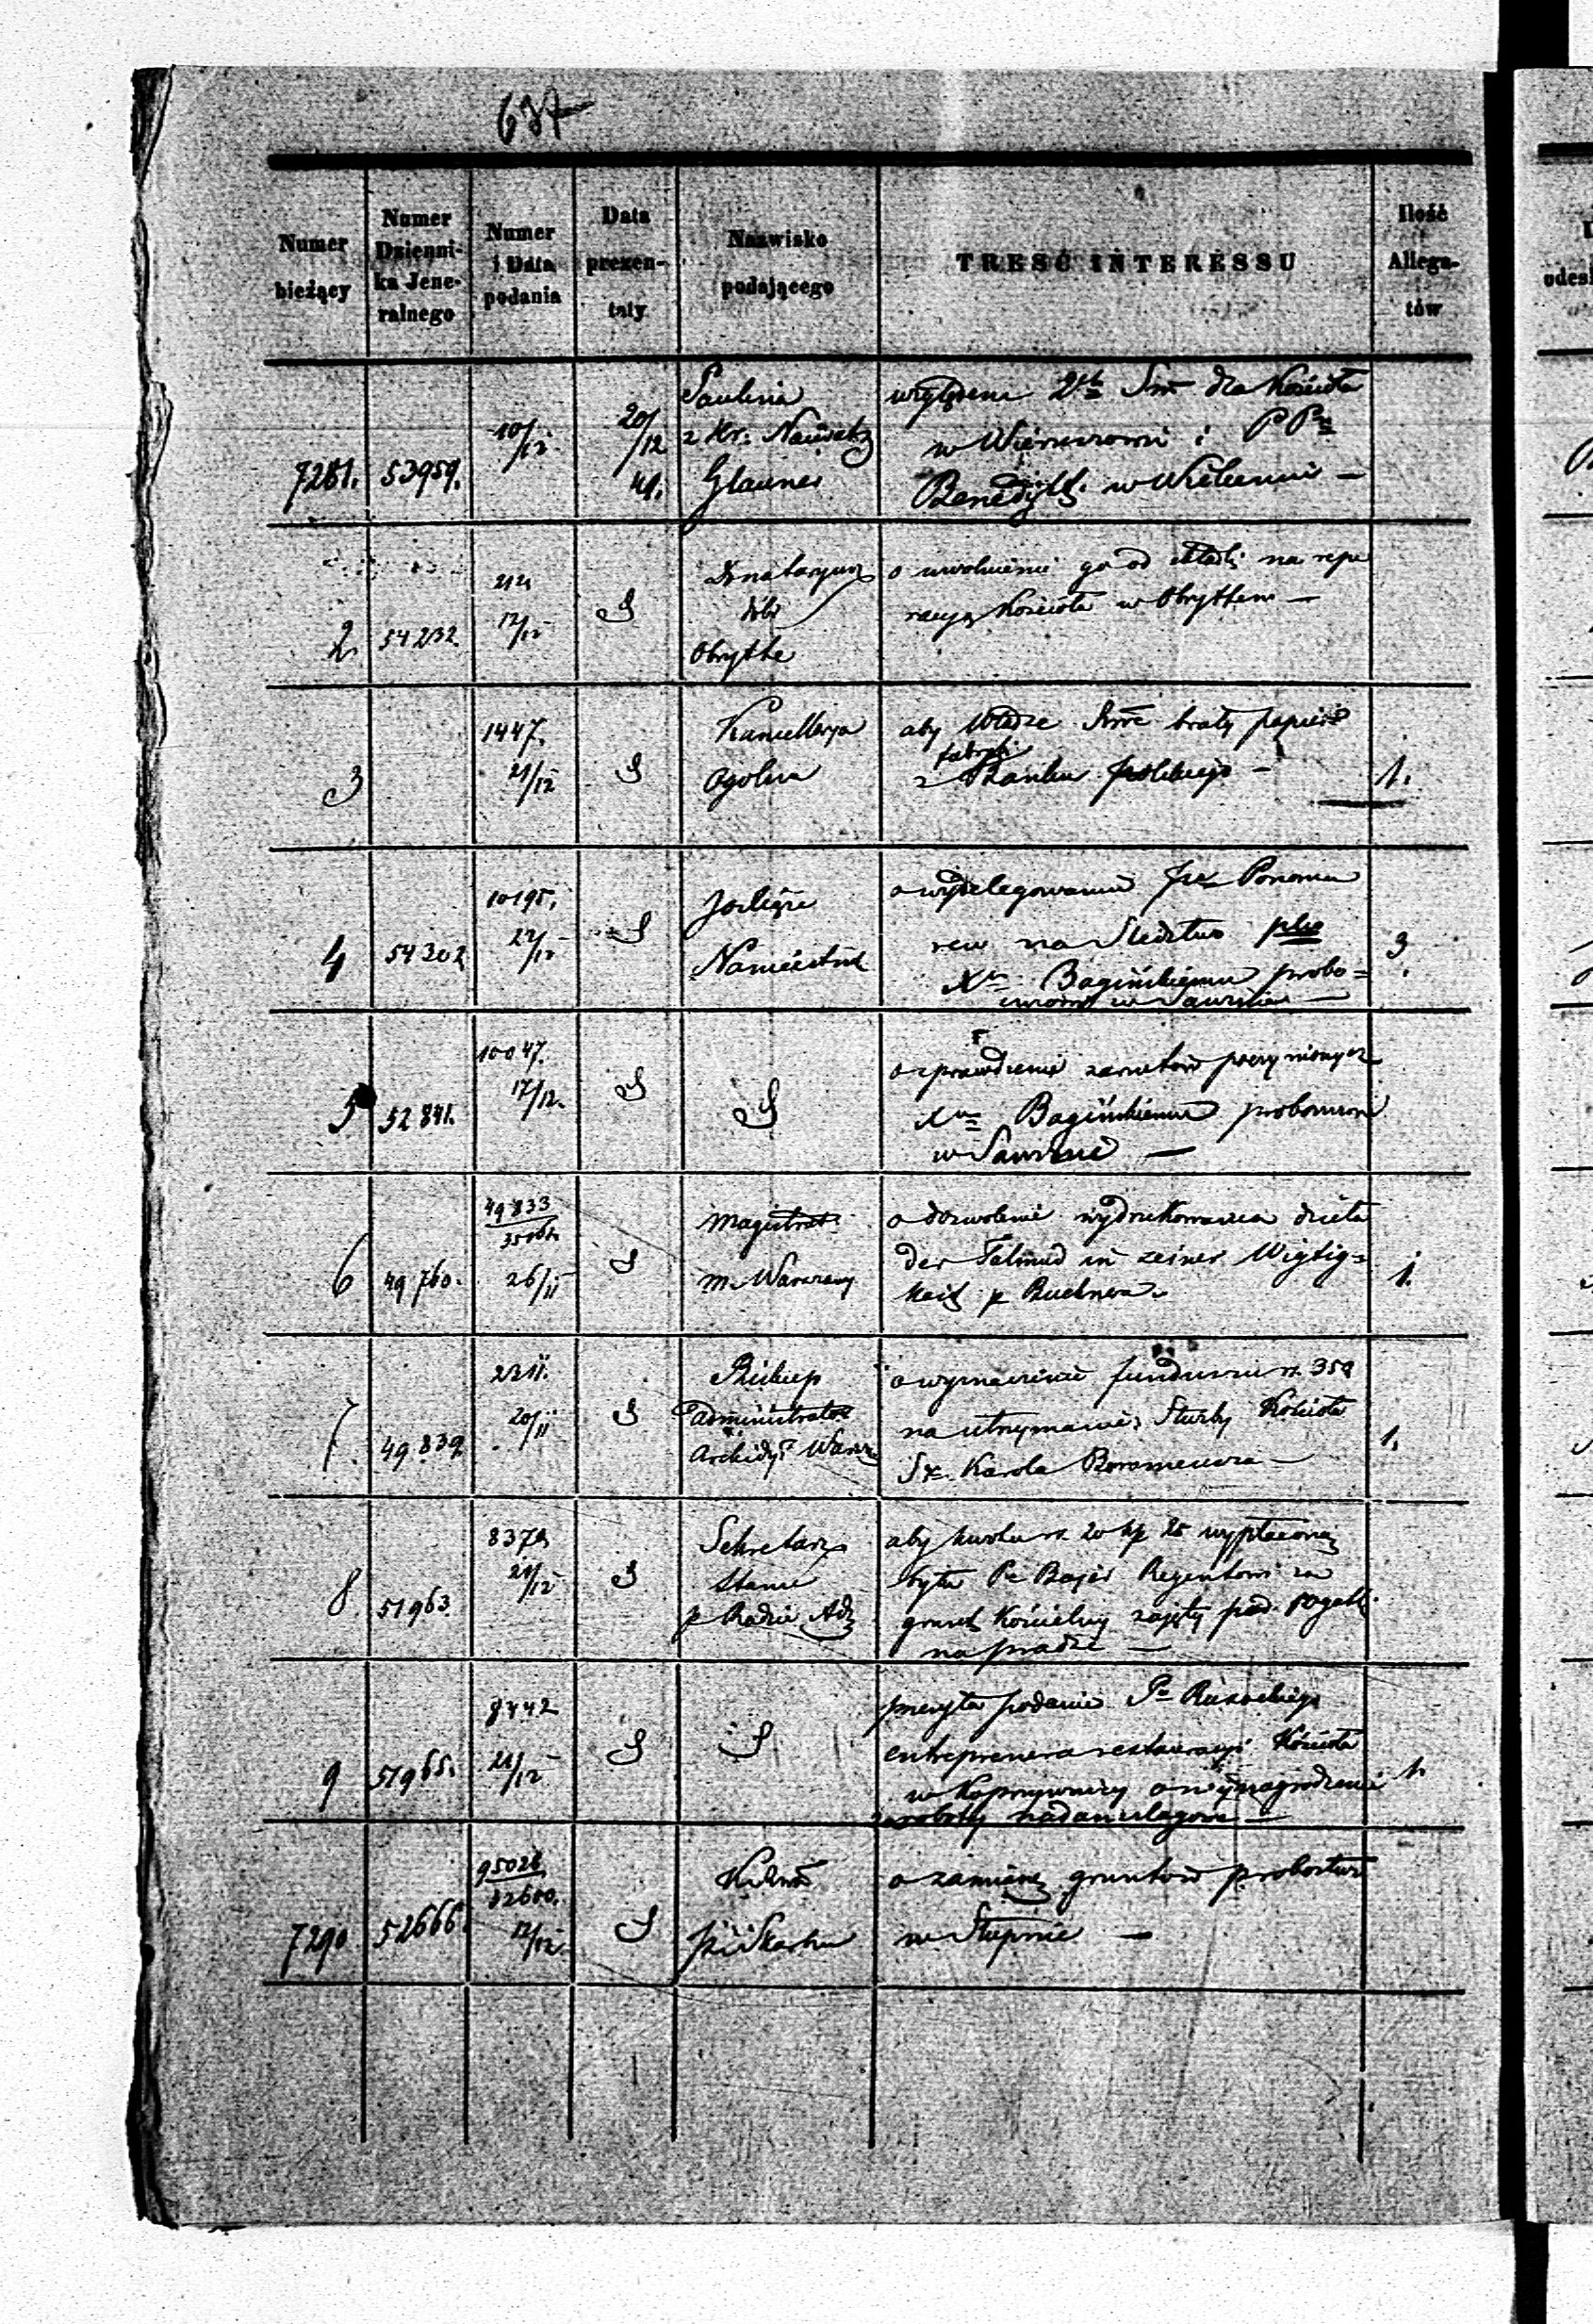 637
Numer bieżący
Numer Dzienni-ka Jene-ralnego
Numer i Data podania
Data prezen-taty
Nazwisko podającego
TREŚĆ INTERESSU
Ilość Allega-tów
7281. 53959. 10/12 20/12 49.
Paulina
Glauner
względem dla Kościoła
w i PP
Benedykt. w Wieluniu —
2 54232. 17/12
Donataryusz
dóbr
Obrytte
o uwolnienie go od składki na repe
racyą Kościoła w Obryttem —
3 1447. 21/12 1.
Kancellarya
Ogólna
aby Władze brały papier
fabryki
z Banku Polskiego —
4 54302 10195. 22/12 3.
JO Xięże
Namiestnik
o wydelegowanie
rew na Śledztwo plko
Xu Bagińskiemu probo=
szczowi w Sawinie —
5 52841. 10047. 17/12.
o sprawdzenie zarzutów poczynionych
Xu Bagińskiemu proboszczowi
w Sawinie —
6 49760. 49833 26/11 1.
Magistrat
m. Warszawy
o dozwolenie wydrukowania dzieła
der Talmud in seiner Wigtig=
keit p Buchnera
7. 49839 2311. 20/11 1.
Biskup
Administrator
Archidy. Warsz
o wyznaczenie funduszu rs. 350
na utrzymanie Służby Kościoła
Sgo Karola Boromeusza —
8 51963. 8379 21/12
Sekretarz
Stanu
p Radzie Adm
aby kwota rs. 20 kp 25 wypłaconą
była Pu Bajer Regentowi za
grunt Kościelny zajęty pod rogatki
na Pradze —
9 51965. 8442 21/12 1.
przesyła podanie
entreprenera restauracyi Kościoła
w Koprzywnicy o wynagrodzenie
za roboty nadanszlagowe —
7290 52666. 95026 32600. 12/12.
Skarbu
o zamianę gruntów probostwa
w Słupnie —